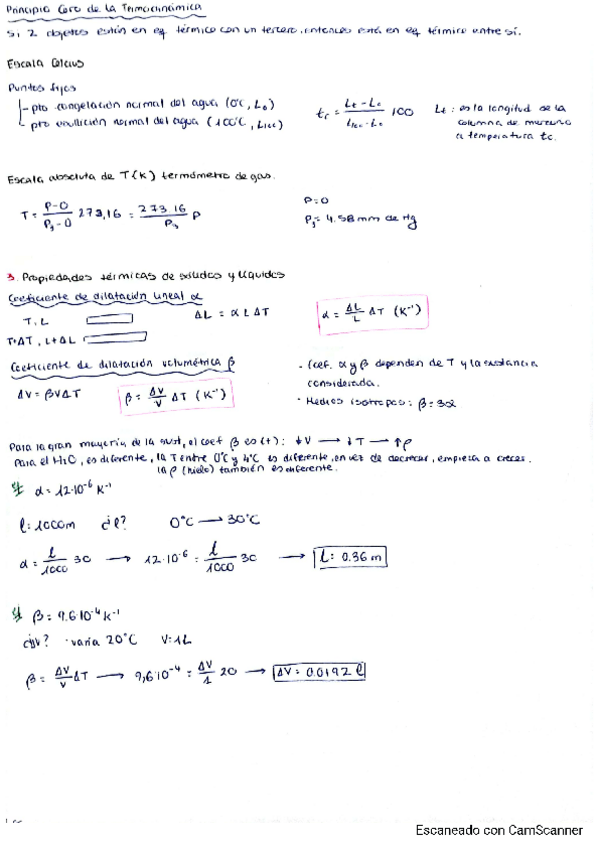 Principio Cero de la Termodinámica
Si 2 objetos están en eq térmico con un tercero, entonces está en eq térmico entre sí.
Escala Celsius
Puntos fijos
pto congelación normal del agua (0°C, L₀)
pto ebullición normal del agua (100°C, L₁₀₀)
tc = (Lt - L₀)/(L₁₀₀ - L₀) 100
Lt: es la longitud de la columna de mercurio a temperatura tc.
Escala absoluta de T(K) termómetro de gas.
T = (P-0)/(P₃-0) 273,16 = (273,16)/P₃ P
P=0
P₃ = 4.58 mm de Hg
3. Propiedades térmicas de sólidos y líquidos
Coeficiente de dilatación lineal α
T, L
T+ΔT, L+ΔL
ΔL = α L ΔT
α = ΔL/L ΔT (K⁻¹)
Coeficiente de dilatación volumétrica β
ΔV = βVΔT
β = ΔV/V ΔT (K⁻¹)
· Coef. α y β dependen de T y la sustancia considerada.
· Medios isotropos: β = 3α
Para la gran mayoría de la sust, el coef β es (+): ↓V → ↓T → ↑ρ
Para el H₂O, es diferente, la T entre 0°C y 4°C es diferente, en vez de decrecer, empieza a crecer.
la ρ (hielo) también es diferente.
α = 12·10⁻⁶ K⁻¹
l = 1000m ¿l? 0°C → 30°C
α = l/1000 30 → 12·10⁻⁶ = l/1000 30 → l = 0.36 m
β = 9.6·10⁻⁴ K⁻¹
¿ΔV? · varía 20°C V = 1L
β = ΔV/V ΔT → 9,6·10⁻⁴ = ΔV/1 20 → ΔV = 0.0192 l
Escaneado con CamScanner